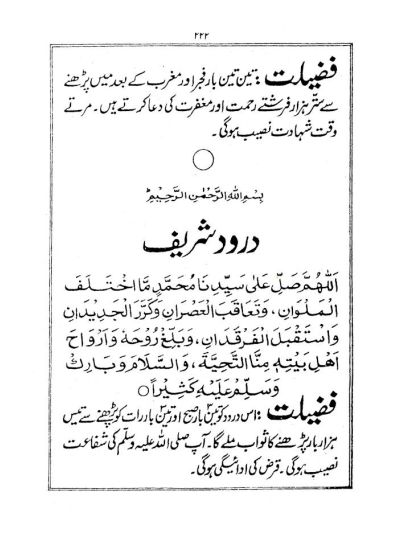 ۲۲۲
فضیلت : تین تین بار فجر اور مغرب کے بعد میں پڑھنے
سے ستر ہزار فرشتے رحمت اور مغفرت کی دعا کرتے ہیں۔ مرتے
وقت شہادت نصیب ہوگی۔
بِسْمِ اللهِ الرَّحْمٰنِ الرَّحِيْمِ
درود شریف
اَللّٰهُمَّ صَلِّ عَلٰى سَيِّدِنَا مُحَمَّدٍ مَّا اخْتَلَفَ
الْمَلَوَانِ، وَتَعَاقَبَ الْعَصْرَانِ وَكَرَّرَ الْجَدِيْدَانِ
وَاسْتَقْبَلَ الْفَرْقَدَانِ، وَبَلِّغْ رُوْحَهٗ وَاَرْوَاحَ
اَهْلِ بَيْتِهٖ مِنَّا التَّحِيَّةَ، وَالسَّلَامَ وَبَارِكْ
وَسَلِّمْ عَلَيْهِ كَثِيْرًا
فضیلت : اس درود کو تین بار صبح اور تین بار رات کو پڑھنے سے تیس
ہزار بار پڑھنے کا ثواب ملے گا۔ آپ صلی اللہ علیہ وسلم کی شفاعت
نصیب ہوگی۔ قرض کی ادائیگی ہوگی۔